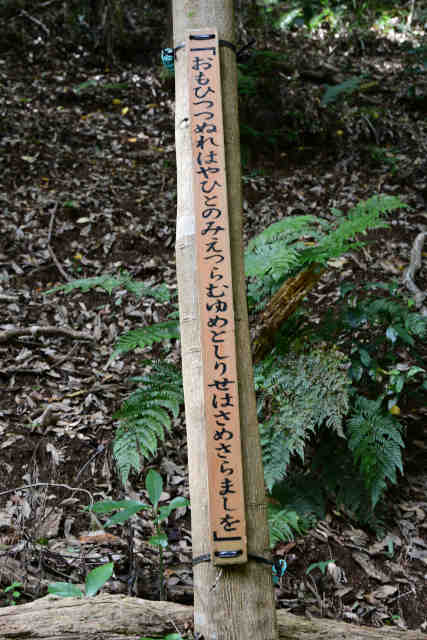 『おもひつつぬれはやひとのみえつらむゆめとしりせはさめさらましを』